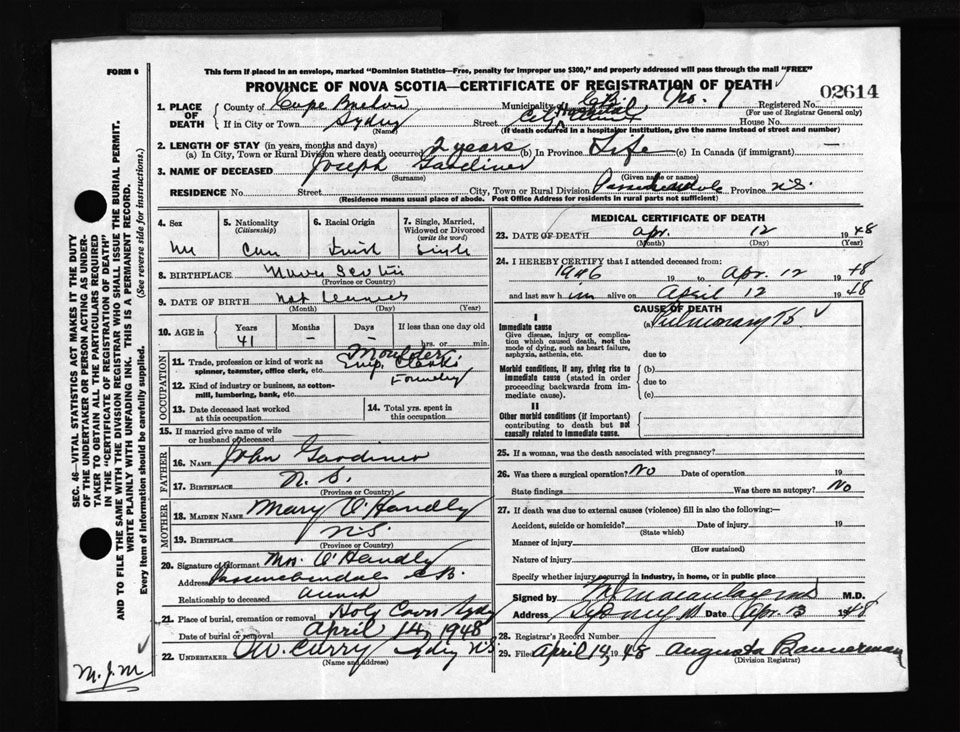 FORM 6
This form if placed in an envelope, marked "Dominion Statistics—Free, penalty for improper use $300," and properly addressed will pass through the mail "FREE"
PROVINCE OF NOVA SCOTIA—CERTIFICATE OF REGISTRATION OF DEATH
02614
1. PLACE OF DEATH
County of Cape Breton Municipality of C.B. No. 1 Registered No.
(For use of Registrar General only)
If in City or Town Sydney Street City Hospital House No.
(Name) (If death occurred in a hospital or institution, give the name instead of street and number)
2. LENGTH OF STAY (in years, months and days)
(a) In City, Town or Rural Division where death occurred 2 years (b) In Province Life (c) In Canada (if immigrant) —
3. NAME OF DECEASED Joseph Gardiner
(Surname) (Given name or names)
RESIDENCE No. Street City, Town or Rural Division Province N.S.
(Residence means usual place of abode. Post Office Address for residents in rural parts not sufficient)
4. Sex M
5. Nationality (Citizenship) Can
6. Racial Origin Irish
7. Single, Married, Widowed or Divorced (write the word) Single
8. BIRTHPLACE Nova Scotia
(Province or Country)
9. DATE OF BIRTH Not
(Month) (Day) (Year)
10. AGE in Years 41 Months — Days — If less than one day hrs. or min.
OCCUPATION
11. Trade, profession or kind of work as spinner, teamster, office clerk, etc. Moulder
Emp. Clarks
Foundry
12. Kind of industry or business, as cotton-mill, lumbering, bank, etc.
13. Date deceased last worked at this occupation
14. Total yrs. spent in this occupation
15. If married give name of wife or husband of deceased
FATHER
16. NAME John Gardiner
17. BIRTHPLACE N.S.
(Province or Country)
MOTHER
18. MAIDEN NAME Mary O'Handly
19. BIRTHPLACE N.S.
(Province or Country)
20. Signature of informant Mrs. O'Handly
Address C.B.
Relationship to deceased aunt
21. Place of burial, cremation or removal Holy Cross Sydney
Date of burial or removal April 14, 1948
22. UNDERTAKER W. Curry Sydney N.S.
(Name and address)
MEDICAL CERTIFICATE OF DEATH
23. DATE OF DEATH Apr. 12 1948
(Month) (Day) (Year)
24. I HEREBY CERTIFY that I attended deceased from:
1946 19 to Apr. 12 1948
and last saw him alive on April 12 1948
CAUSE OF DEATH
I
Immediate cause
Give disease, injury or complication which caused death, not the mode of dying, such as heart failure, asphyxia, asthenia, etc.
(a) Pulmonary Tb
due to
Morbid conditions, if any, giving rise to immediate cause (stated in order proceeding backwards from immediate cause).
(b)
due to
(c)
II
Other morbid conditions (if important) contributing to death but not causally related to immediate cause.
25. If a woman, was the death associated with pregnancy?
26. Was there a surgical operation? No Date of operation 19
State findings Was there an autopsy? No
27. If death was due to external causes (violence) fill in also the following:—
Accident, suicide or homicide? Date of injury 19
(State which)
Manner of injury
(How sustained)
Nature of injury
Specify whether injury occurred in industry, in home, or in public place
Signed by M.D.
Address Sydney Date Apr. 13 1948
28. Registrar's Record Number
29. Filed April 14, 1948 Augusta Bannerman
(Division Registrar)
SEC. 46—VITAL STATISTICS ACT MAKES IT THE DUTY OF THE UNDERTAKER OR PERSON ACTING AS UNDERTAKER TO OBTAIN ALL THE PARTICULARS REQUIRED IN THE "CERTIFICATE OF REGISTRATION OF DEATH" AND TO FILE THE SAME WITH THE DIVISION REGISTRAR WHO SHALL ISSUE THE BURIAL PERMIT.
WRITE PLAINLY WITH UNFADING INK. THIS IS A PERMANENT RECORD.
Every item of information should be carefully supplied. (See reverse side for instructions.)
M.J.M